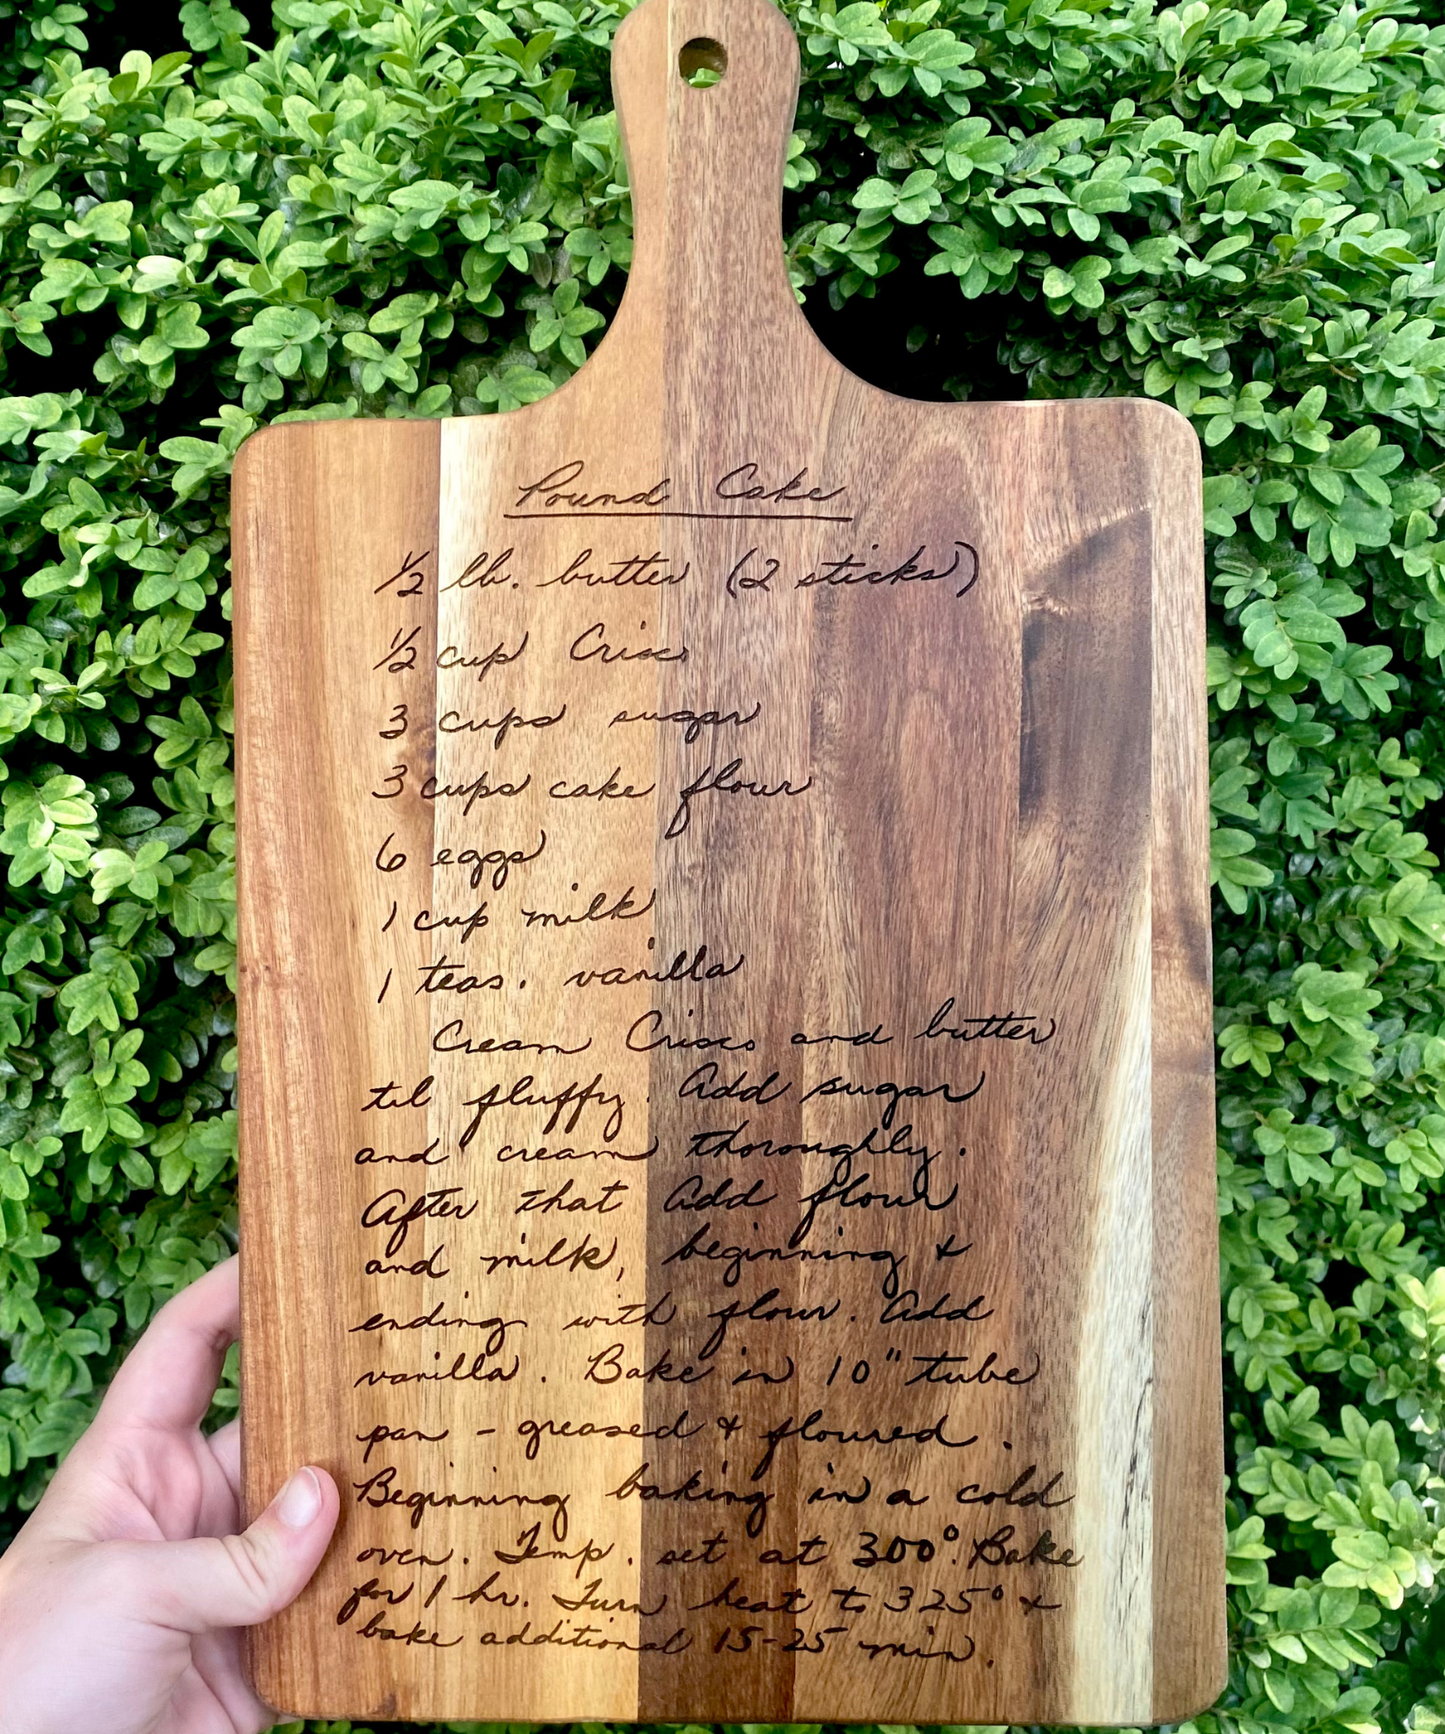 Pound Cake
1/2 lb. butter (2 sticks)
1/2 cup Crisco
3 cups sugar
3 cups cake flour
6 eggs
1 cup milk
1 teas. vanilla
Cream Crisco and butter
til fluffy. Add sugar
and cream thoroughly.
After that add flour
and milk, beginning &
ending with flour. Add
vanilla. Bake in 10" tube
pan - greased & floured.
Beginning baking in a cold
oven. Temp. set at 300°. Bake
for 1 hr. Turn heat to 325° &
bake additional 15-25 min.